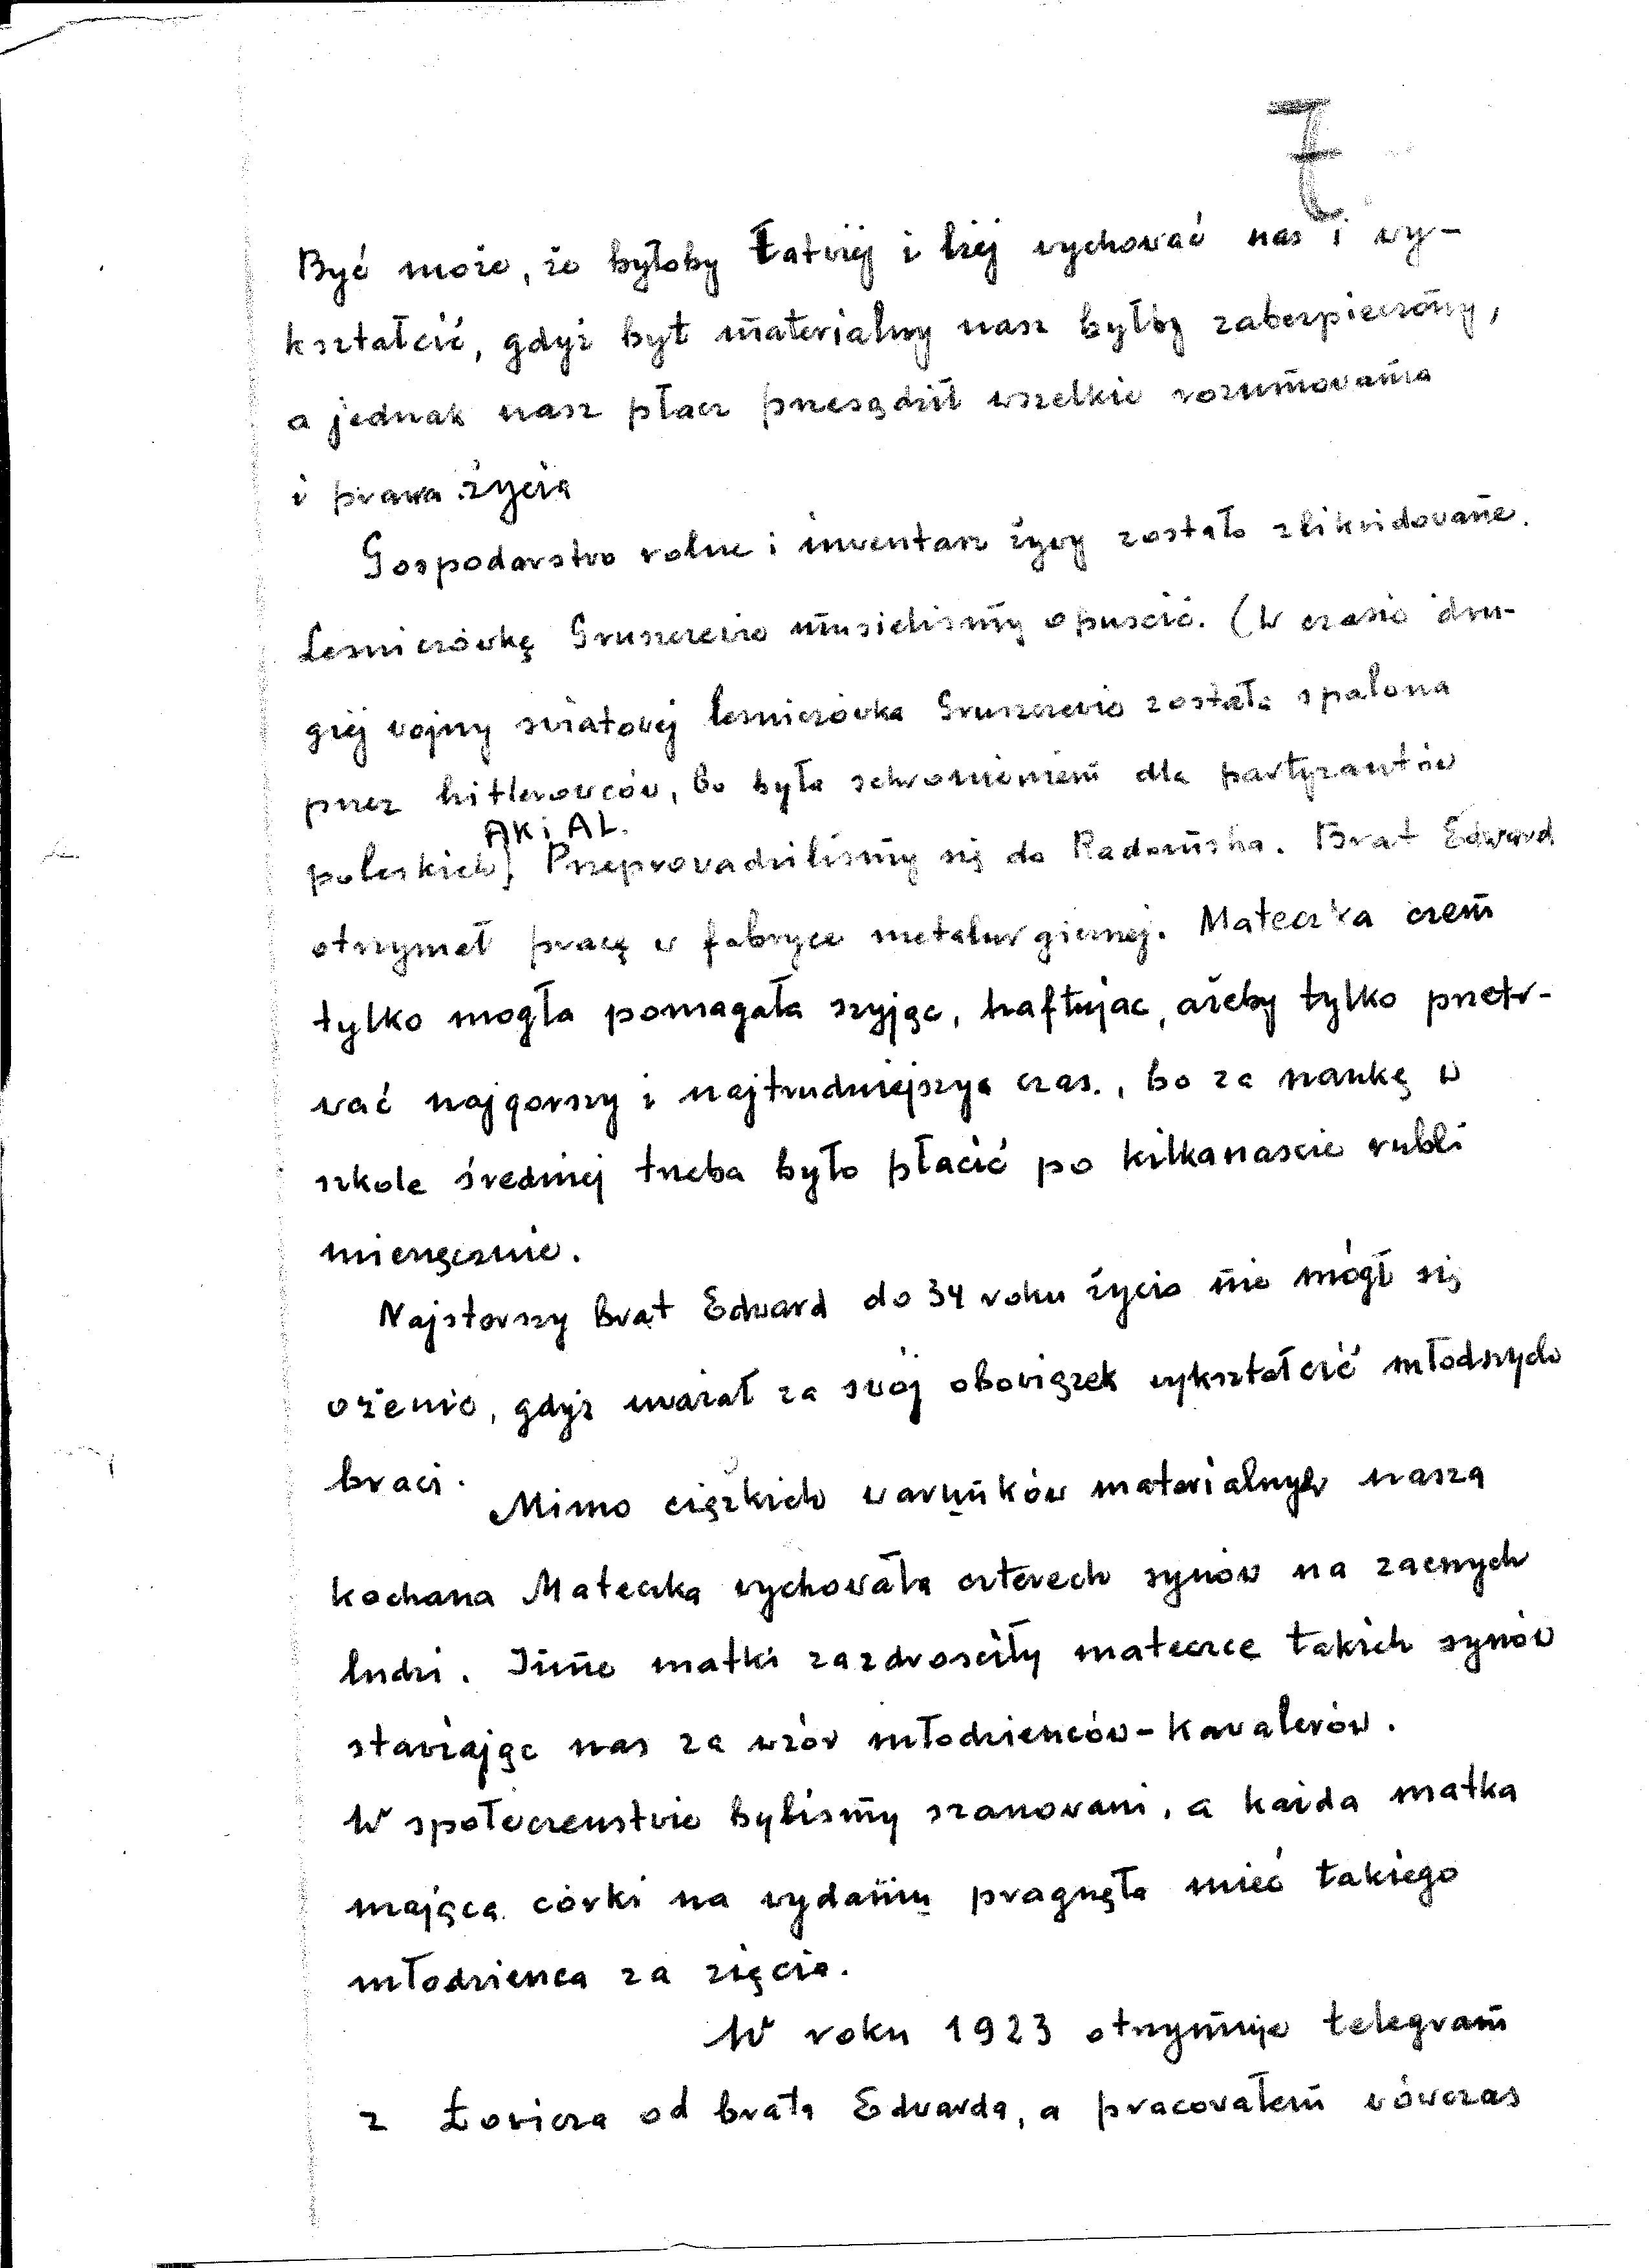 7
Być może, że byłoby łatwiej i lżej wychować nas i wy-
kształcić, gdyż byt materialny nasz byłby zabezpieczony,
a jednak nasz płacz przesądził wszelkie rozumowania
i prawa życia
Gospodarstwo rolne i inwentarz żywy zostało zlikwidowane.
Lesniczówkę Gruszczewie musielismy opuścić. (W czasie dru-
giej wojny swiatowej lesniczówka Gruszczewie została spalona
przez hitlerowców, bo była schronieniem dla partyzantów
AK i AL.
poleskich) Przeprowadzilismy się do Radomska. Brat Edward
otrzymał pracę w fabryce metalurgicznej. Mateczka czem
tylko mogła pomagała szyjąc, haftujac, ażeby tylko przetr-
wać najgorszy i najtrudniejszy czas., bo za naukę w
szkole średniej trzeba było płacić po kilkanascie rubli
miesięcznie.
Najstarszy brat Edward do 34 roku życia nie mógł się
ożenic, gdyż uważał za swój obowiązek wykształcić młodszych
braci.
Mimo ciężkich warunków materialnych nasza
kochana Mateczka wychowała czterech synów na zacnych
ludzi. Inne matki zazdrosciły mateczce takich synów
stawiając nas za wzór młodzienców-kawalerów.
W społeczenstwie bylismy szanowani, a każda matka
mająca córki na wydaniu pragnęła mieć takiego
młodzienca za zięcia.
W roku 1923 otrzymuje telegram
z Łowicza od brata Edwarda, a pracowałem wówczas